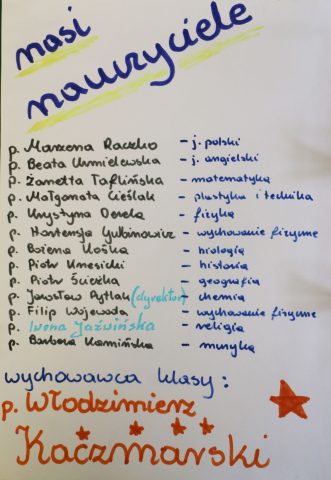 nasi
nauczyciele
p. Marzena Raczko - j. polski
p. Beata Chmielewska - j. angielski
p. Żanetta Taflińska - matematyka
p. Małgorzata Cieślak - plastyka i technika
p. Krystyna - fizyka
p. Hortensja Gulbinowicz - wychowanie fizyczne
p. Bożena Kośka - biologia
p. Piotr Knesicki - historia
p. Piotr Ścieżka - geografia
p. Jarosław Pytlak (dyrektor) - chemia
p. Filip Wojewoda - wychowanie fizyczne
p. Iwona Jaźwińska - religia
p. Barbara Kamińska - muzyka
wychowawca klasy:
p. Włodzimierz
Kaczmarski